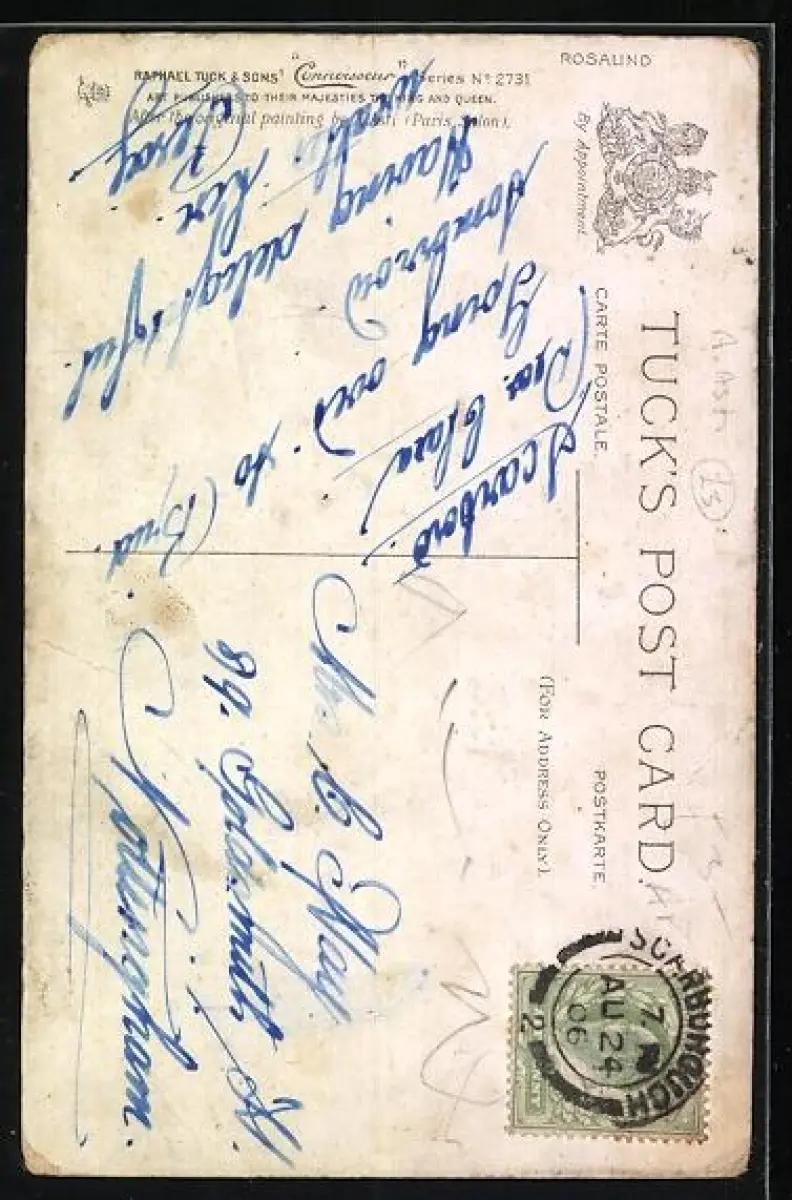 ROSALIND
RAPHAEL TUCK & SONS' "Connoisseur" Series Nº 2731
ART PUBLISHERS TO THEIR MAJESTIES THE KING AND QUEEN.
After the original painting by Asti (Paris, Salon).
By Appointment
TUCK'S POST CARD.
CARTE POSTALE.
POSTKARTE.
(FOR ADDRESS ONLY).
Scarboro
Dear Clara
Going over to Brid.
tomorrow
Having delightful
weather
Mrs C. May
99. Goldsmith St.
Nottingham.
SCARBOROUGH
7
AU 24
06
2
A. Asti